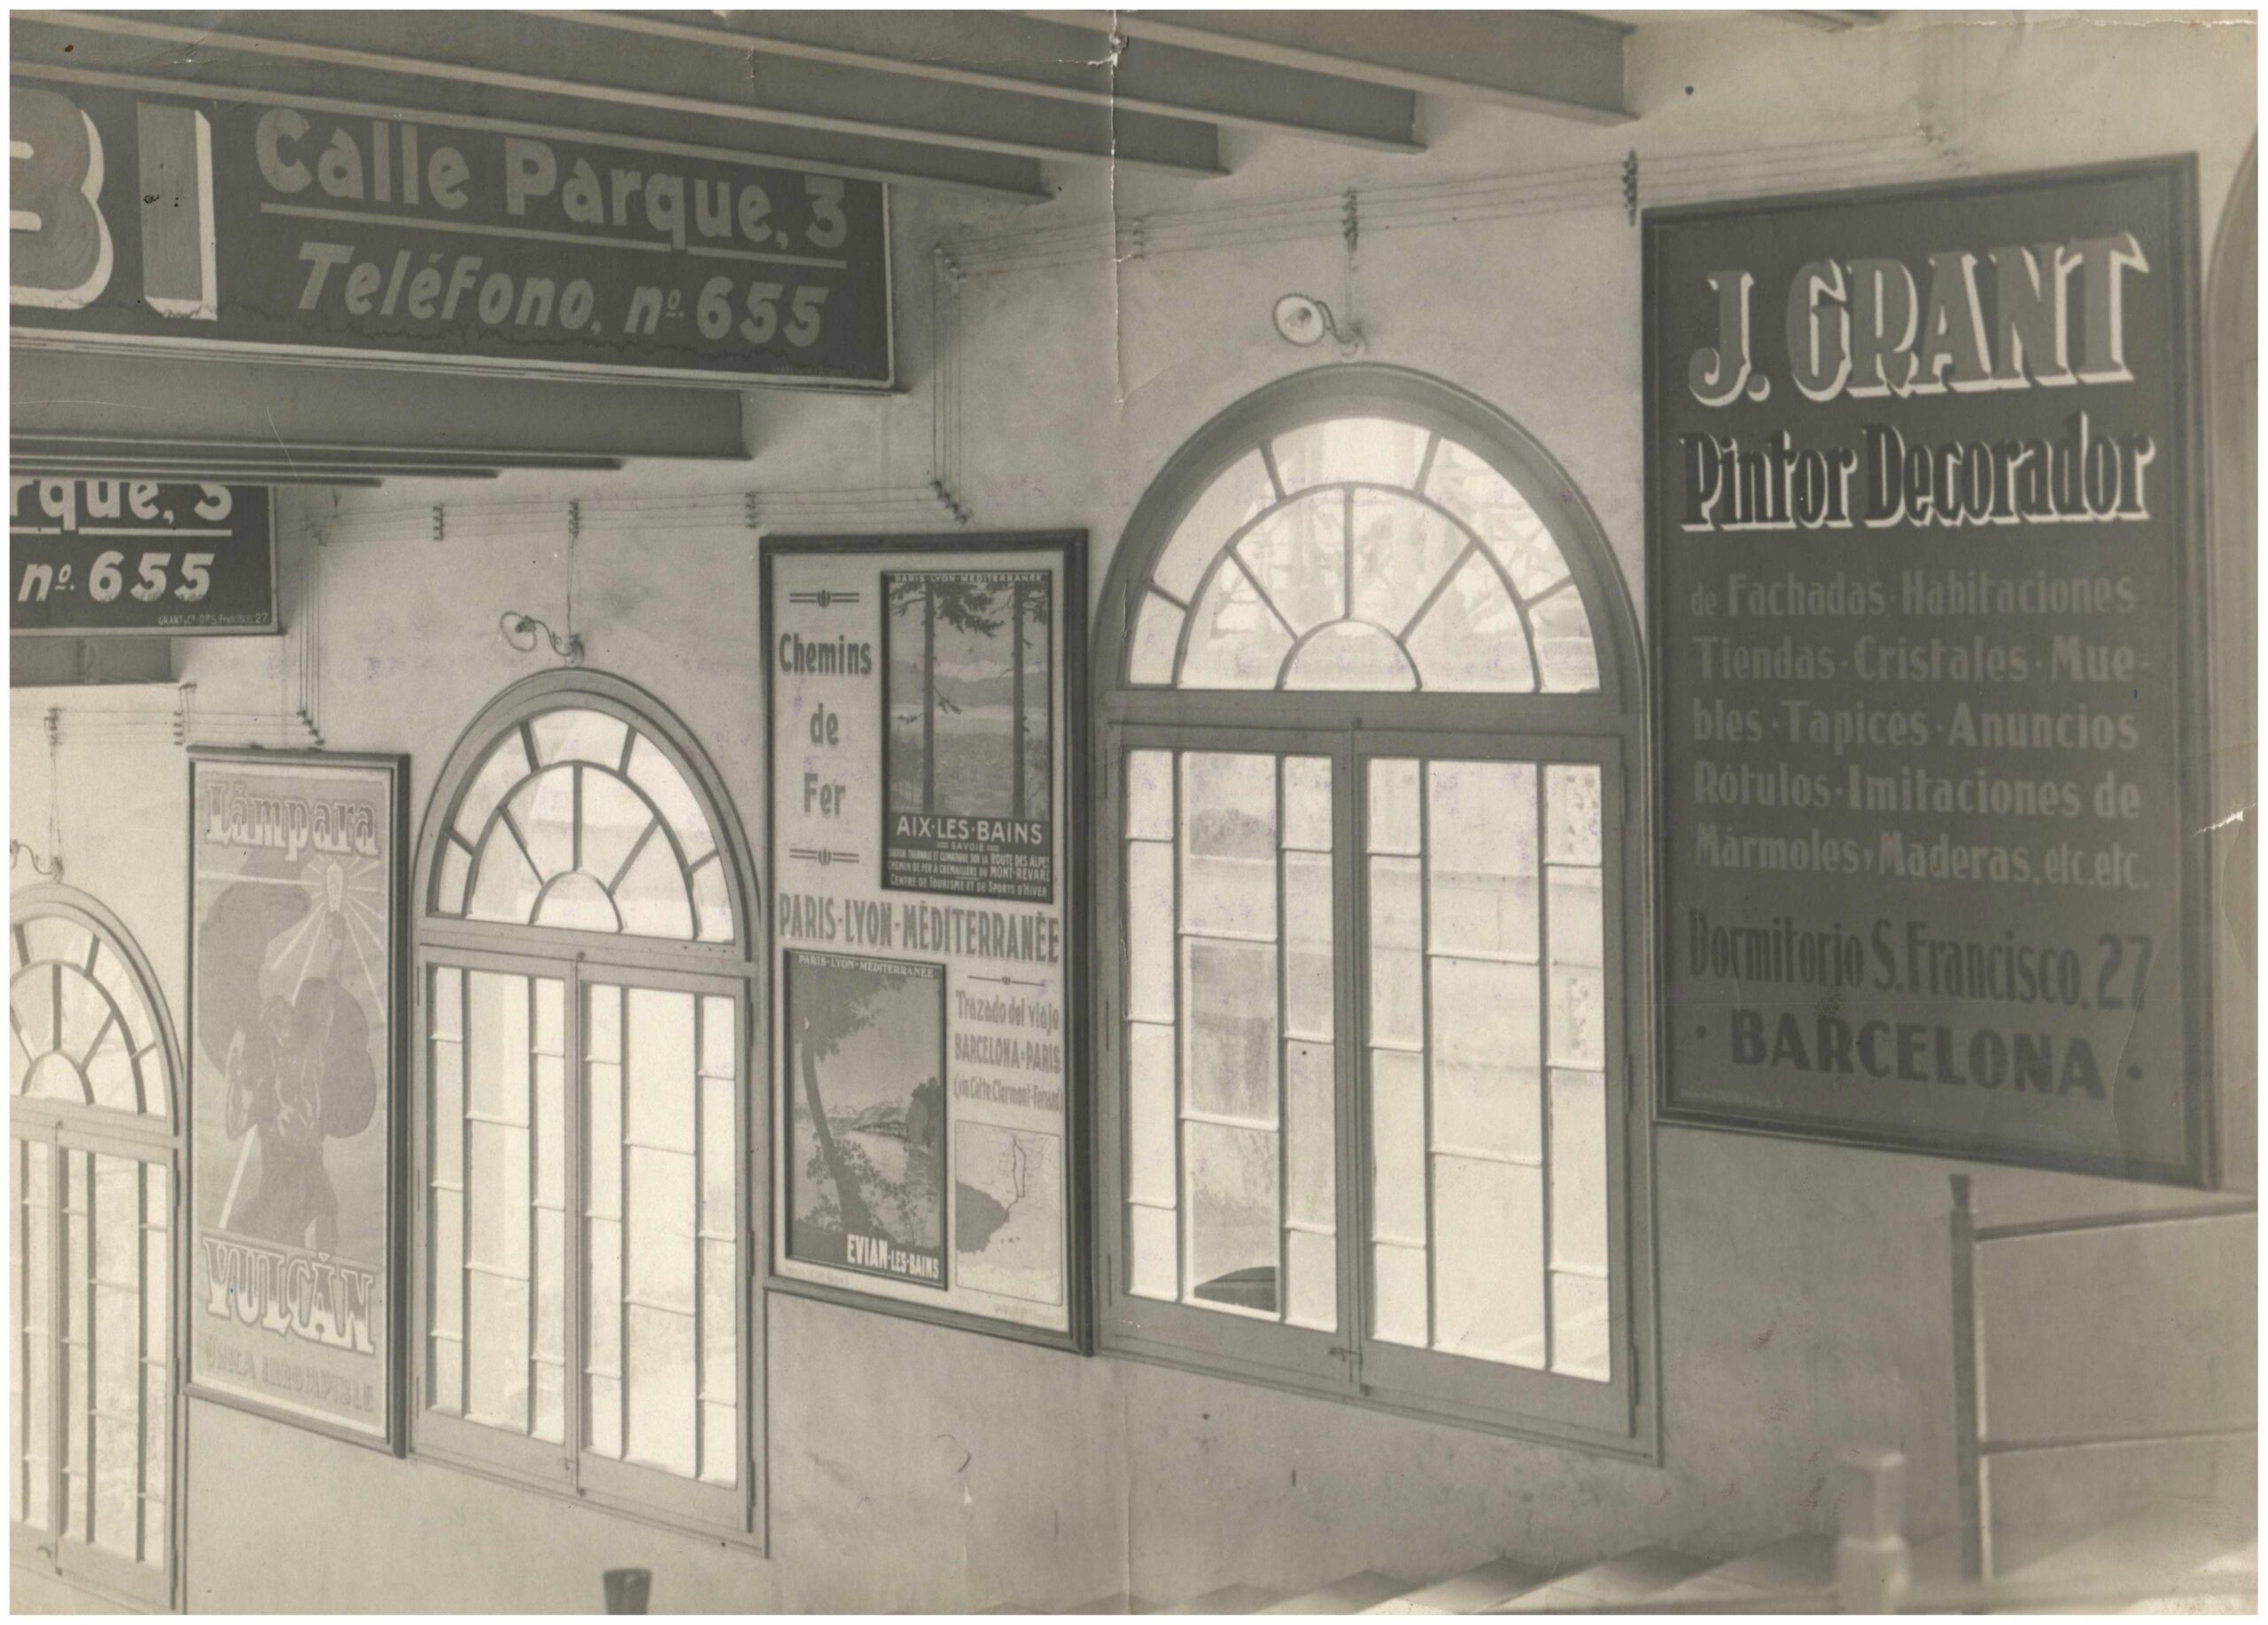 BI
Calle Parque, 3
Teléfono, nº 655
rque, 3
nº 655
GRANT y Cª DºS. Francisco 27
Lámpara
VULCÁN
ÚNICA IRROMPIBLE
Chemins
de
Fer
PARIS-LYON-MÉDITERRANÉE
AIX-LES-BAINS
SAVOIE
STATION THERMALE ET CLIMATIQUE SUR LA ROUTE DES ALPES
CHEMIN DE FER A CRÉMAILLÈRE DU MONT-REVARD
CENTRE DE TOURISME ET DE SPORTS D'HIVER
PARIS-LYON-MÉDITERRANÉE
PARIS-LYON-MÉDITERRANÉE
EVIAN-LES-BAINS
Trazado del viaje
BARCELONA-PARIS
(via Cette Clermont-Ferrand)
J. GRANT
Pintor Decorador
de Fachadas·Habitaciones
Tiendas·Cristales·Mue-
bles·Tapices·Anuncios
Rótulos·Imitaciones de
Mármoles y Maderas, etc. etc.
Dormitorio S. Francisco, 27
· BARCELONA ·